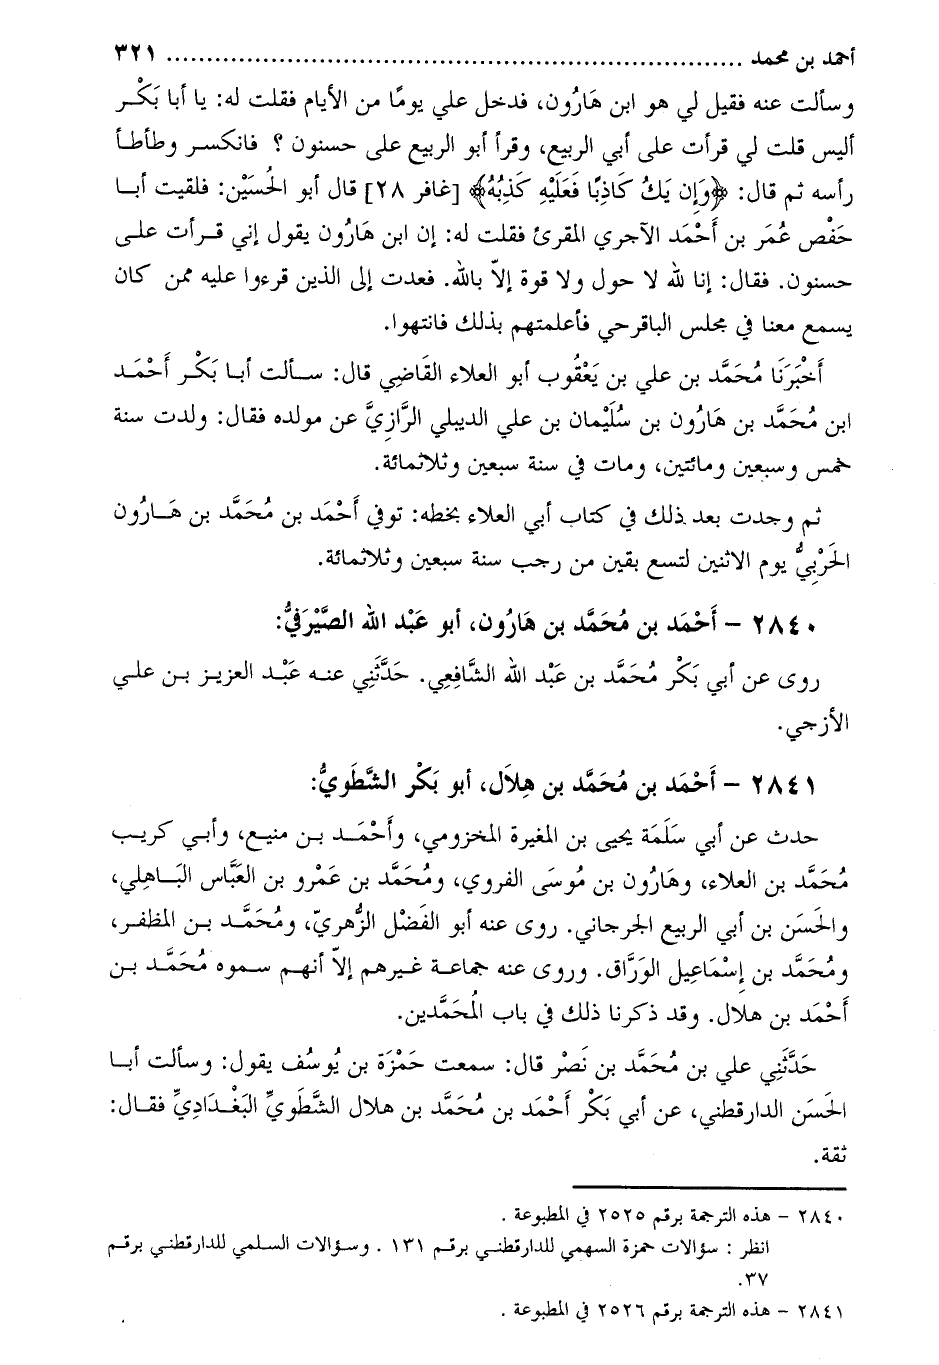 أحمد بن محمد ........................................................................ ٣٢١
وسألت عنه فقيل لي هو ابن هَارُون، فدخل علي يومًا من الأيام فقلت له: يا أبا بَكْر
أليس قلت لي قرأت على أبي الربيع، وقرأ أبو الربيع على حسنون ؟ فانكسر وطأطأ
رأسه ثم قال: ﴿وَإِن يَكُ كَاذِبًا فَعَلَيْهِ كَذِبُهُ﴾ [غافر ٢٨] قال أبو الحُسَيْن: فلقيت أبا
حَفْص عُمَر بن أَحْمَد الآجري المقرئ فقلت له: إن ابن هَارُون يقول إني قرأت على
حسنون. فقال: إنا لله لا حول ولا قوة إلاّ بالله. فعدت إلى الذين قرءوا عليه ممن كان
يسمع معنا في مجلس الباقرحي فأعلمتهم بذلك فانتهوا.
أَخْبَرَنَا مُحَمَّد بن علي بن يَعْقُوب أبو العلاء القَاضِي قال: سألت أبا بَكْر أَحْمَد
ابن مُحَمَّد بن هَارُون بن سُلَيْمان بن علي الديبلي الرَّازِيَّ عن مولده فقال: ولدت سنة
خمس وسبعين ومائتين، ومات في سنة سبعين وثلاثمائة.
ثم وجدت بعد ذلك في كتاب أبي العلاء بخطه: توفي أَحْمَد بن مُحَمَّد بن هَارُون
الحَرْبِيُّ يوم الاثنين لتسع بقين من رجب سنة سبعين وثلاثمائة.
٢٨٤٠ – أَحْمَد بن مُحَمَّد بن هَارُون، أبو عَبْد الله الصَّيْرَفِيُّ:
روى عن أبي بَكْر مُحَمَّد بن عَبْد الله الشَّافِعِي. حَدَّثَنِي عنه عَبْد العزيز بن علي
الأزجي.
٢٨٤١ – أَحْمَد بن مُحَمَّد بن هِلاَل، أبو بَكْر الشَّطَوِيُّ:
حدث عن أبي سَلَمَة يحيى بن المغيرة المخزومي، وأَحْمَد بن منيع، وأبي كريب
مُحَمَّد بن العلاء، وهَارُون بن مُوسَى الفروي، ومُحَمَّد بن عَمْرو بن العَبَّاس البَاهِلي،
والحَسَن بن أبي الربيع الجرجاني. روى عنه أبو الفَضْل الزُّهريّ، ومُحَمَّد بن المظفر،
ومُحَمَّد بن إِسْمَاعِيل الوَرَّاق. وروى عنه جماعة غيرهم إلاّ أنهم سموه مُحَمَّد بن
أَحْمَد بن هلال. وقد ذكرنا ذلك في باب المُحَمَّدين.
حَدَّثَنِي علي بن مُحَمَّد بن نَصْر قال: سمعت حَمْزَة بن يُوسُف يقول: وسألت أبا
الحَسَن الدارقطني، عن أبي بَكْر أَحْمَد بن مُحَمَّد بن هلال الشَّطَوِيِّ البَغْدَادِيِّ فقال:
ثقة.
٢٨٤٠ – هذه الترجمة برقم ٢٥٢٥ في المطبوعة .
انظر : سؤالات حمزة السهمي للدارقطني برقم ١٣١ . وسؤالات السلمي للدارقطني برقم
٣٧.
٢٨٤١ – هذه الترجمة برقم ٢٥٢٦ في المطبوعة .